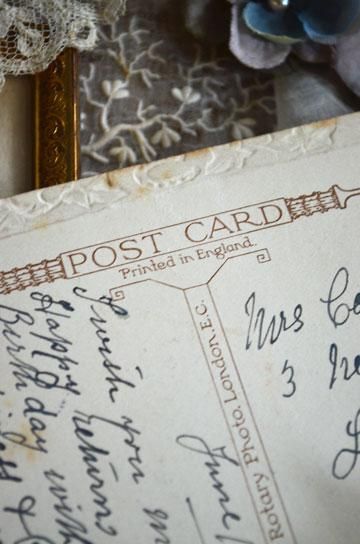 POST CARD
Printed in England.
Rotary Photo, London, E.C.
June
I wish you
Happy Returns
Birthday with
Mrs
3